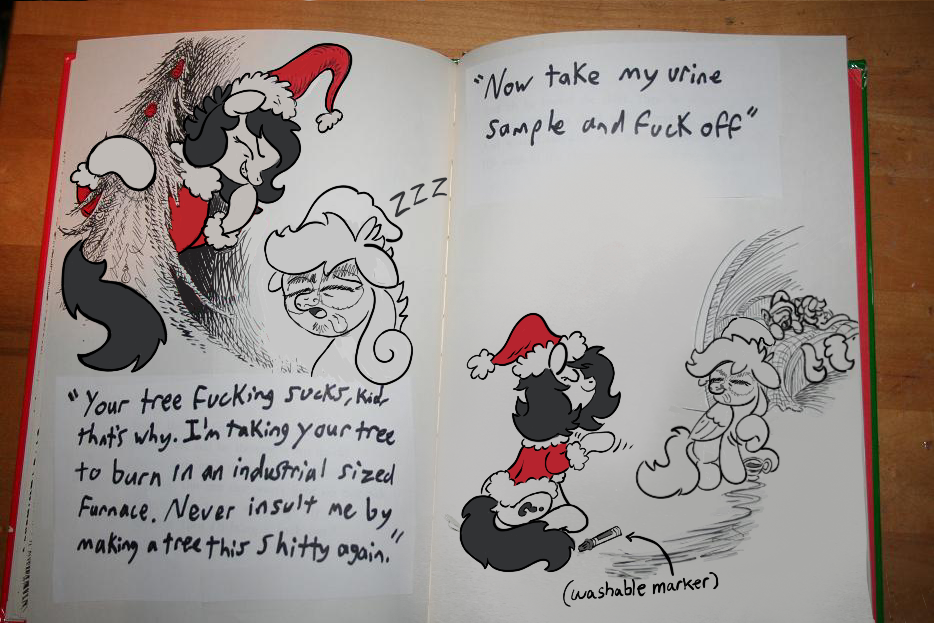 ZZZ
"Your tree Fucking sucks, kid,
that's why. I'm taking your tree
to burn in an industrial sized
Furnace. Never insult me by
making a tree this shitty again."
"Now take my urine
sample and fuck off"
(washable marker)